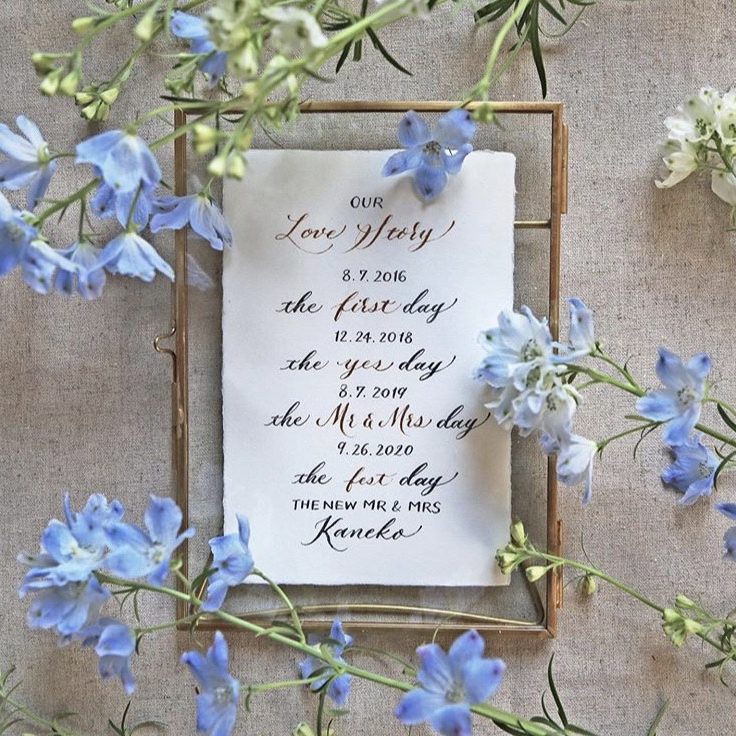 OUR
Love Story
8.7.2016
the first day
12.24.2018
the yes day
8.7.2019
the Mr & Mrs day
9.26.2020
the fest day
THE NEW MR & MRS
Kaneko